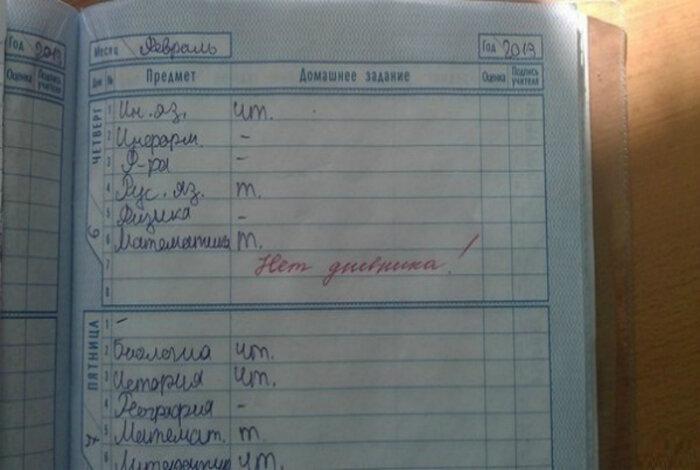 Год 2013
Месяц Февраль Год 2013
Оценка Подпись учителя
Дни № Предмет Домашнее задание Оценка Подпись учителя
ЧЕТВЕРГ
1 Ин. яз. чт.
2 Информ. -
3 Ф-ра -
4 Рус. яз. т.
5 Физика -
6 Математика т.
7 Нет дневника!
8
6
ПЯТНИЦА
1 -
2 Биология чт.
3 История чт.
4 География -
5 Математ. т.
6 Литература чт.